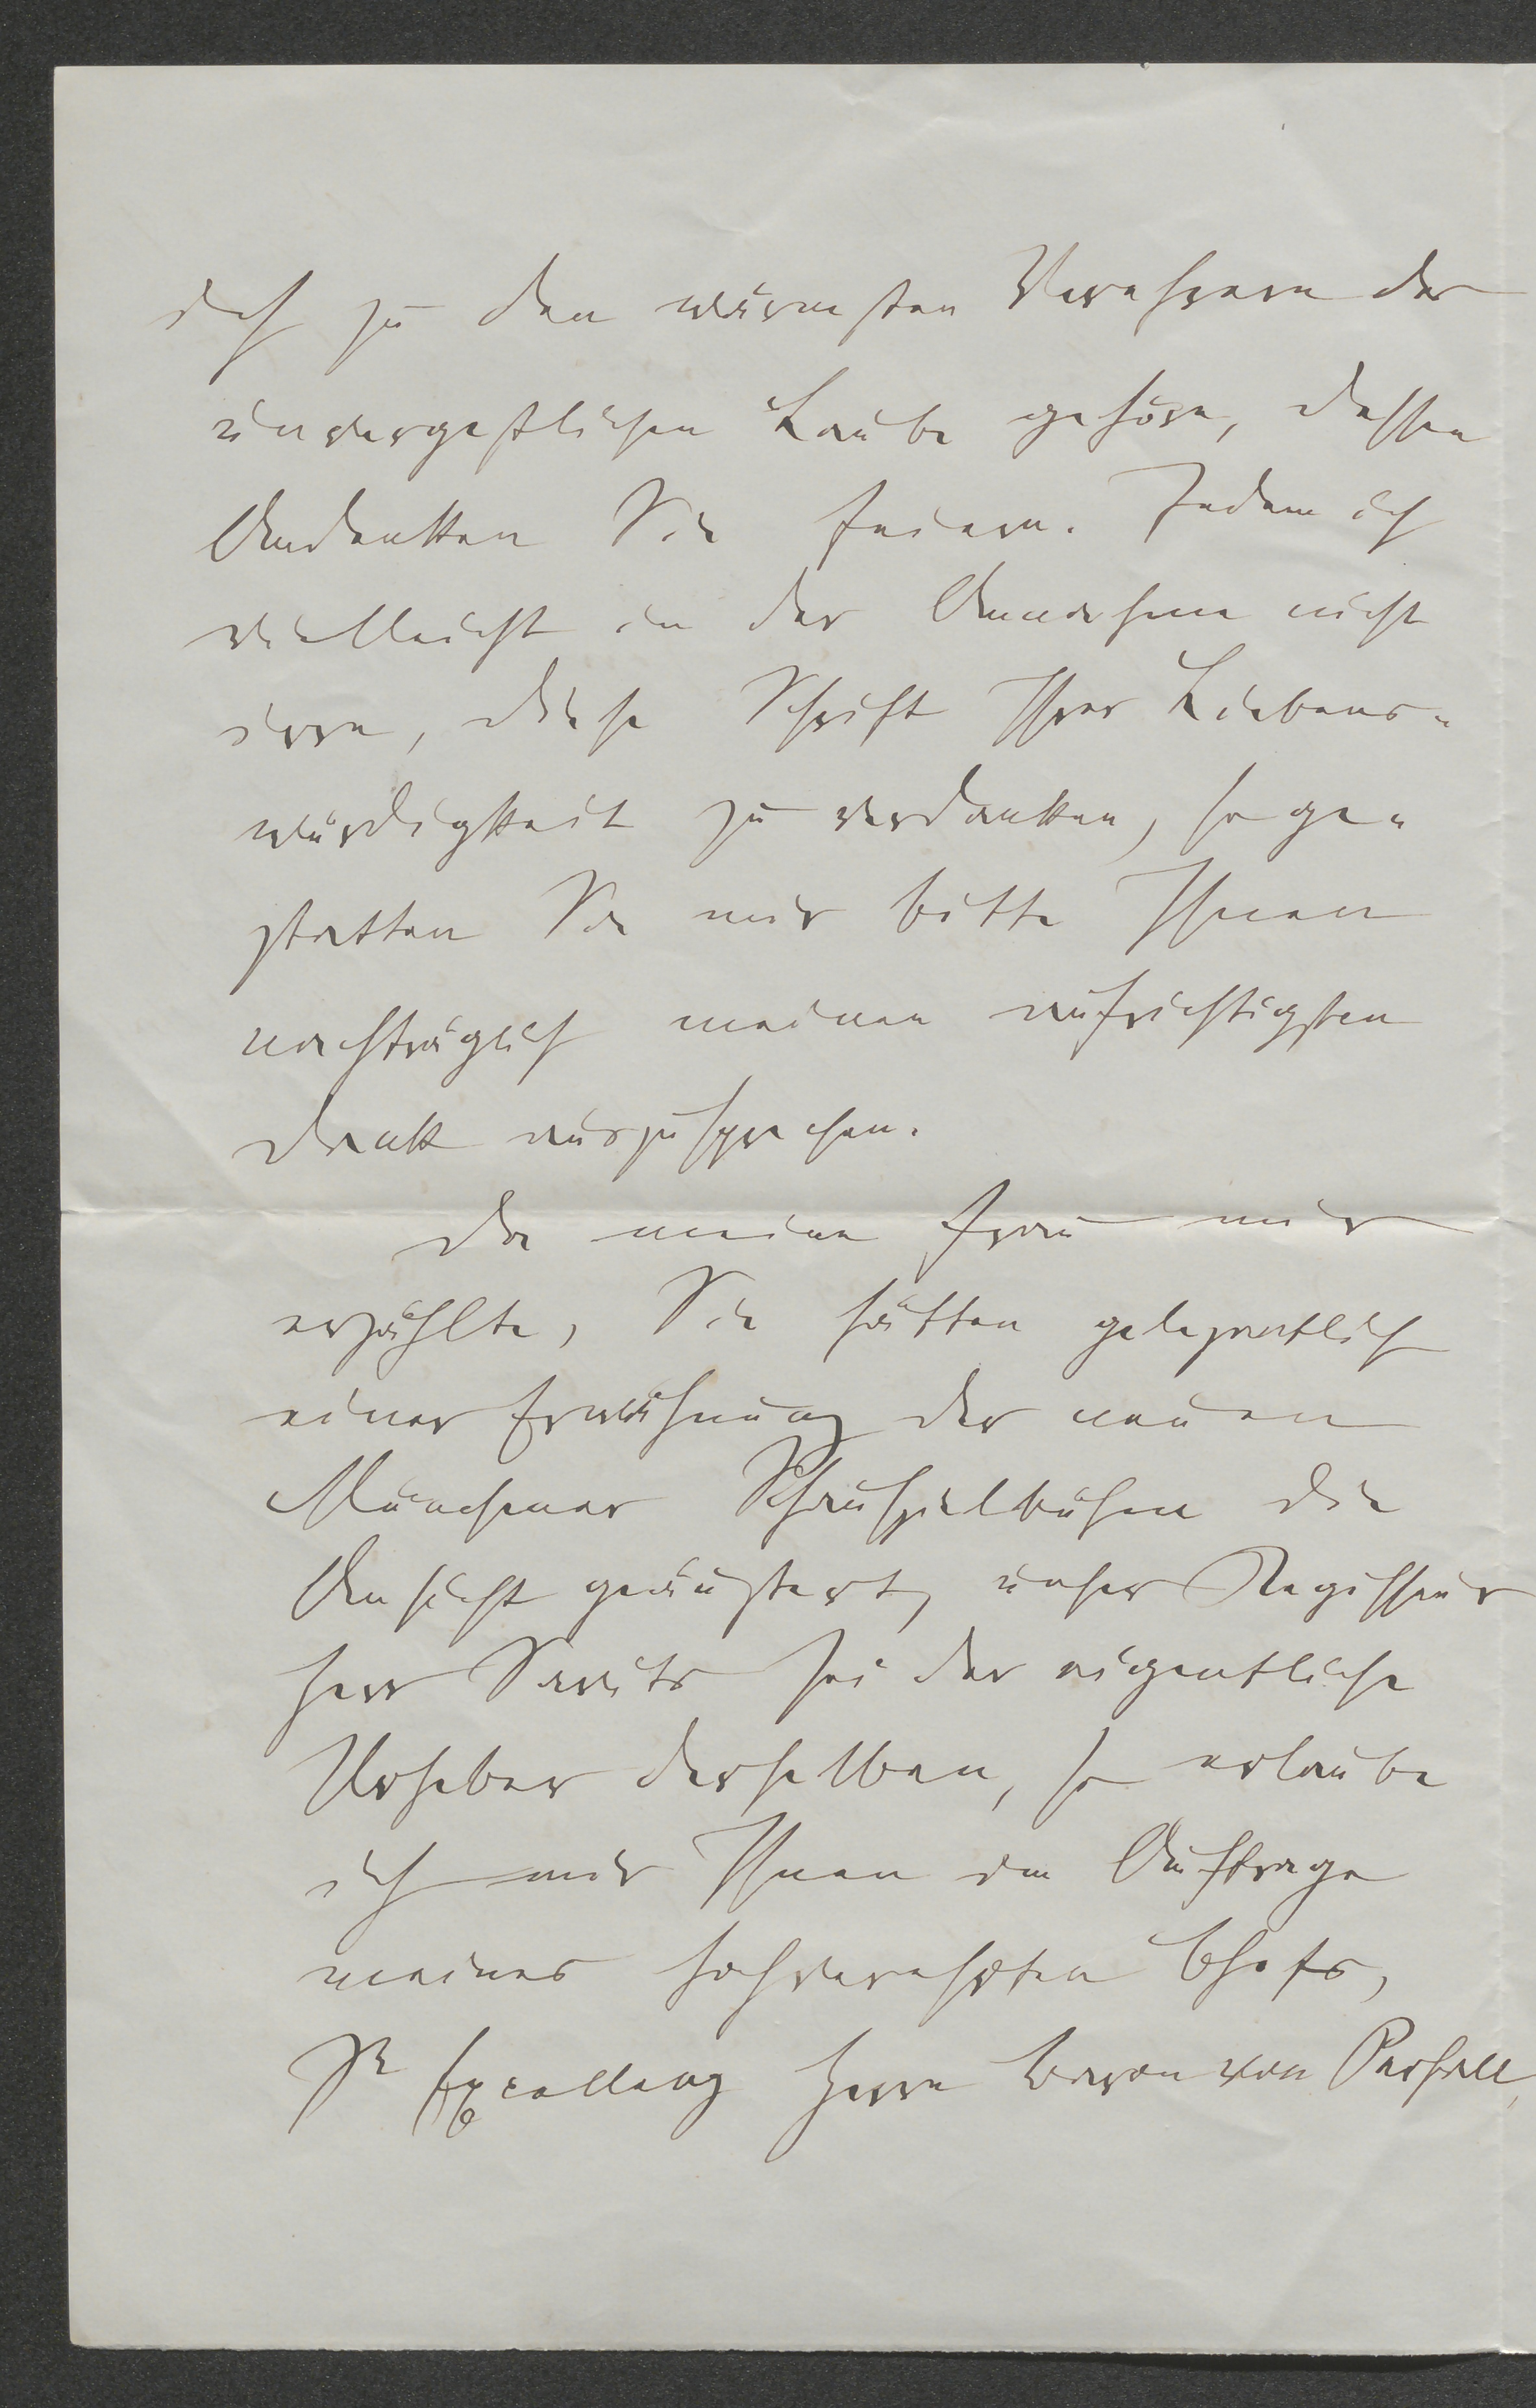 ich zu den wärmsten Verehrern des
unvergeßlichen Laube gehöre, dessen
Andenken Sie feiern. Indem ich
vielleicht in der Annahme nicht
irre, diese Schrift Ihrer Liebens-
würdigkeit zu verdanken, so ge-
statten Sie mir bitte Ihnen
nachträglich meinen aufrichtigsten
Dank auszusprechen.
Da meine Frau mir
erzählte, Sie hätten gelegentlich
einer Erwähnung der neuen
Münchener Schauspielbühne die
Ansicht geäußert, unser Regisseur
Herr Savits sei der eigentliche
Urheber derselben, so erlaube
ich mir Ihnen im Auftrage
meines hochverehrten Chefs,
Sr Excellenz Herrn Baron von Perfall,